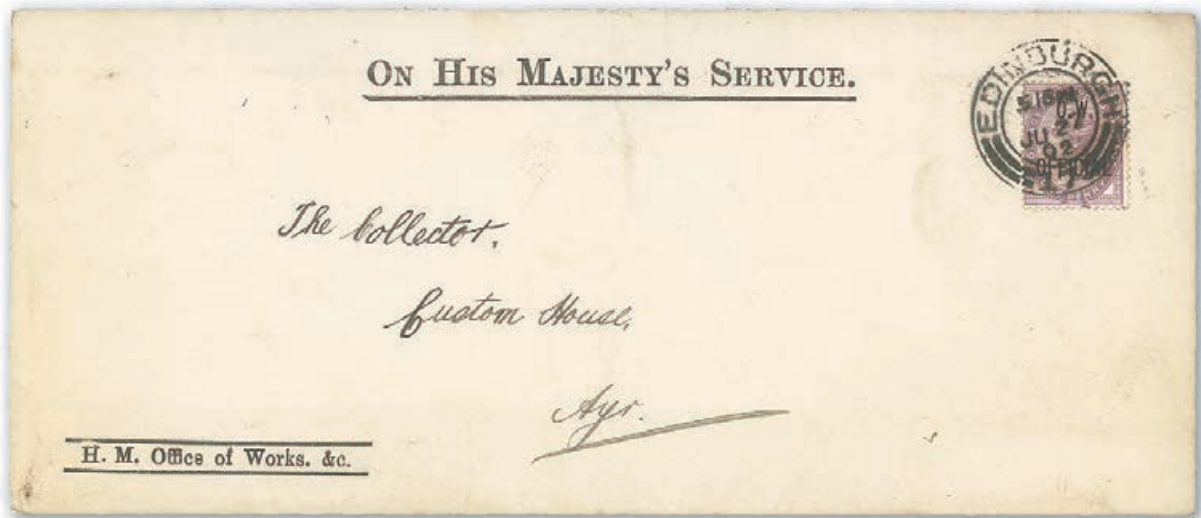 ON HIS MAJESTY'S SERVICE.
EDINBURGH
5 15PM
JU 27
02
17
O.W.
OFFICIAL
The Collector.
Custom House,
Ayr.
H. M. Office of Works. &c.